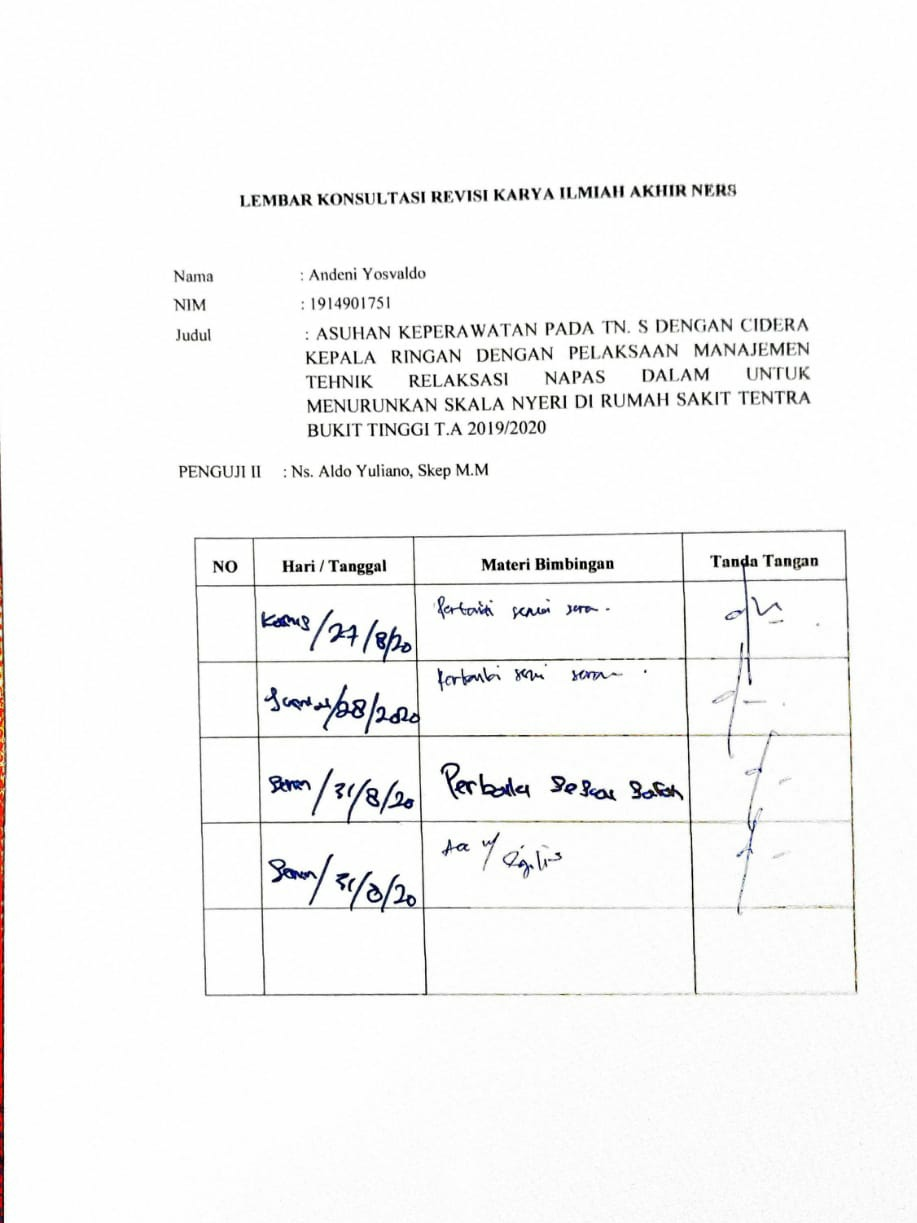 LEMBAR KONSULTASI REVISI KARYA ILMIAH AKHIR NERS
Nama : Andeni Yosvaldo
NIM : 1914901751
Judul : ASUHAN KEPERAWATAN PADA TN. S DENGAN CIDERA
KEPALA RINGAN DENGAN PELAKSAAN MANAJEMEN
TEHNIK RELAKSASI NAPAS DALAM UNTUK
MENURUNKAN SKALA NYERI DI RUMAH SAKIT TENTRA
BUKIT TINGGI T.A 2019/2020
PENGUJI II : Ns. Aldo Yuliano, Skep M.M
NO Hari / Tanggal Materi Bimbingan Tanda Tangan
Kamis/27/8/20
/28/2020
Senin/31/8/20
Senin/31/8/20